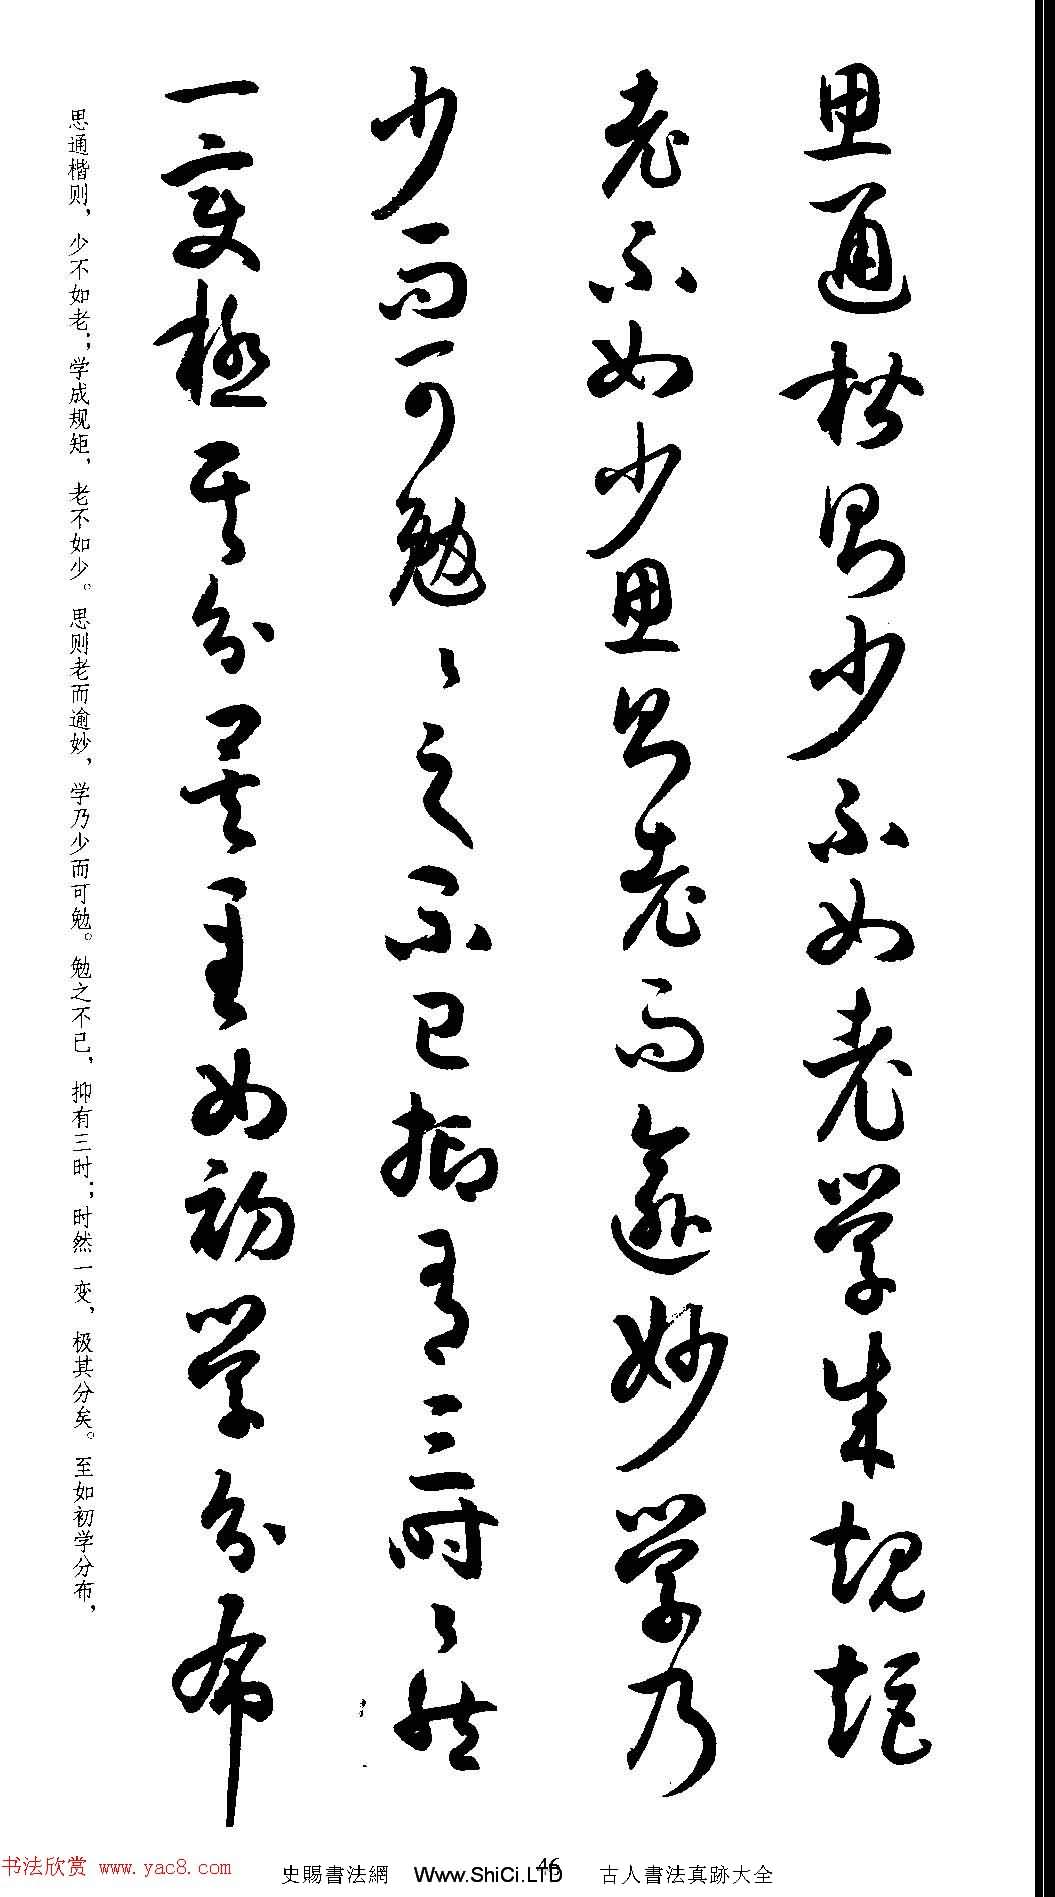 思通楷則少不如老學成規矩
老不如少思則老而逾妙學乃
少而可勉〻之不已抑有三時〻然
一變極其分矣至如初學分布
思通楷则，少不如老；学成规矩，老不如少。思则老而逾妙，学乃少而可勉。勉之不已，抑有三时；时然一变，极其分矣。至如初学分布，
46
书法欣赏 www.yac8.com
史賜書法網 Www.ShiCi.LTD 古人書法真跡大全